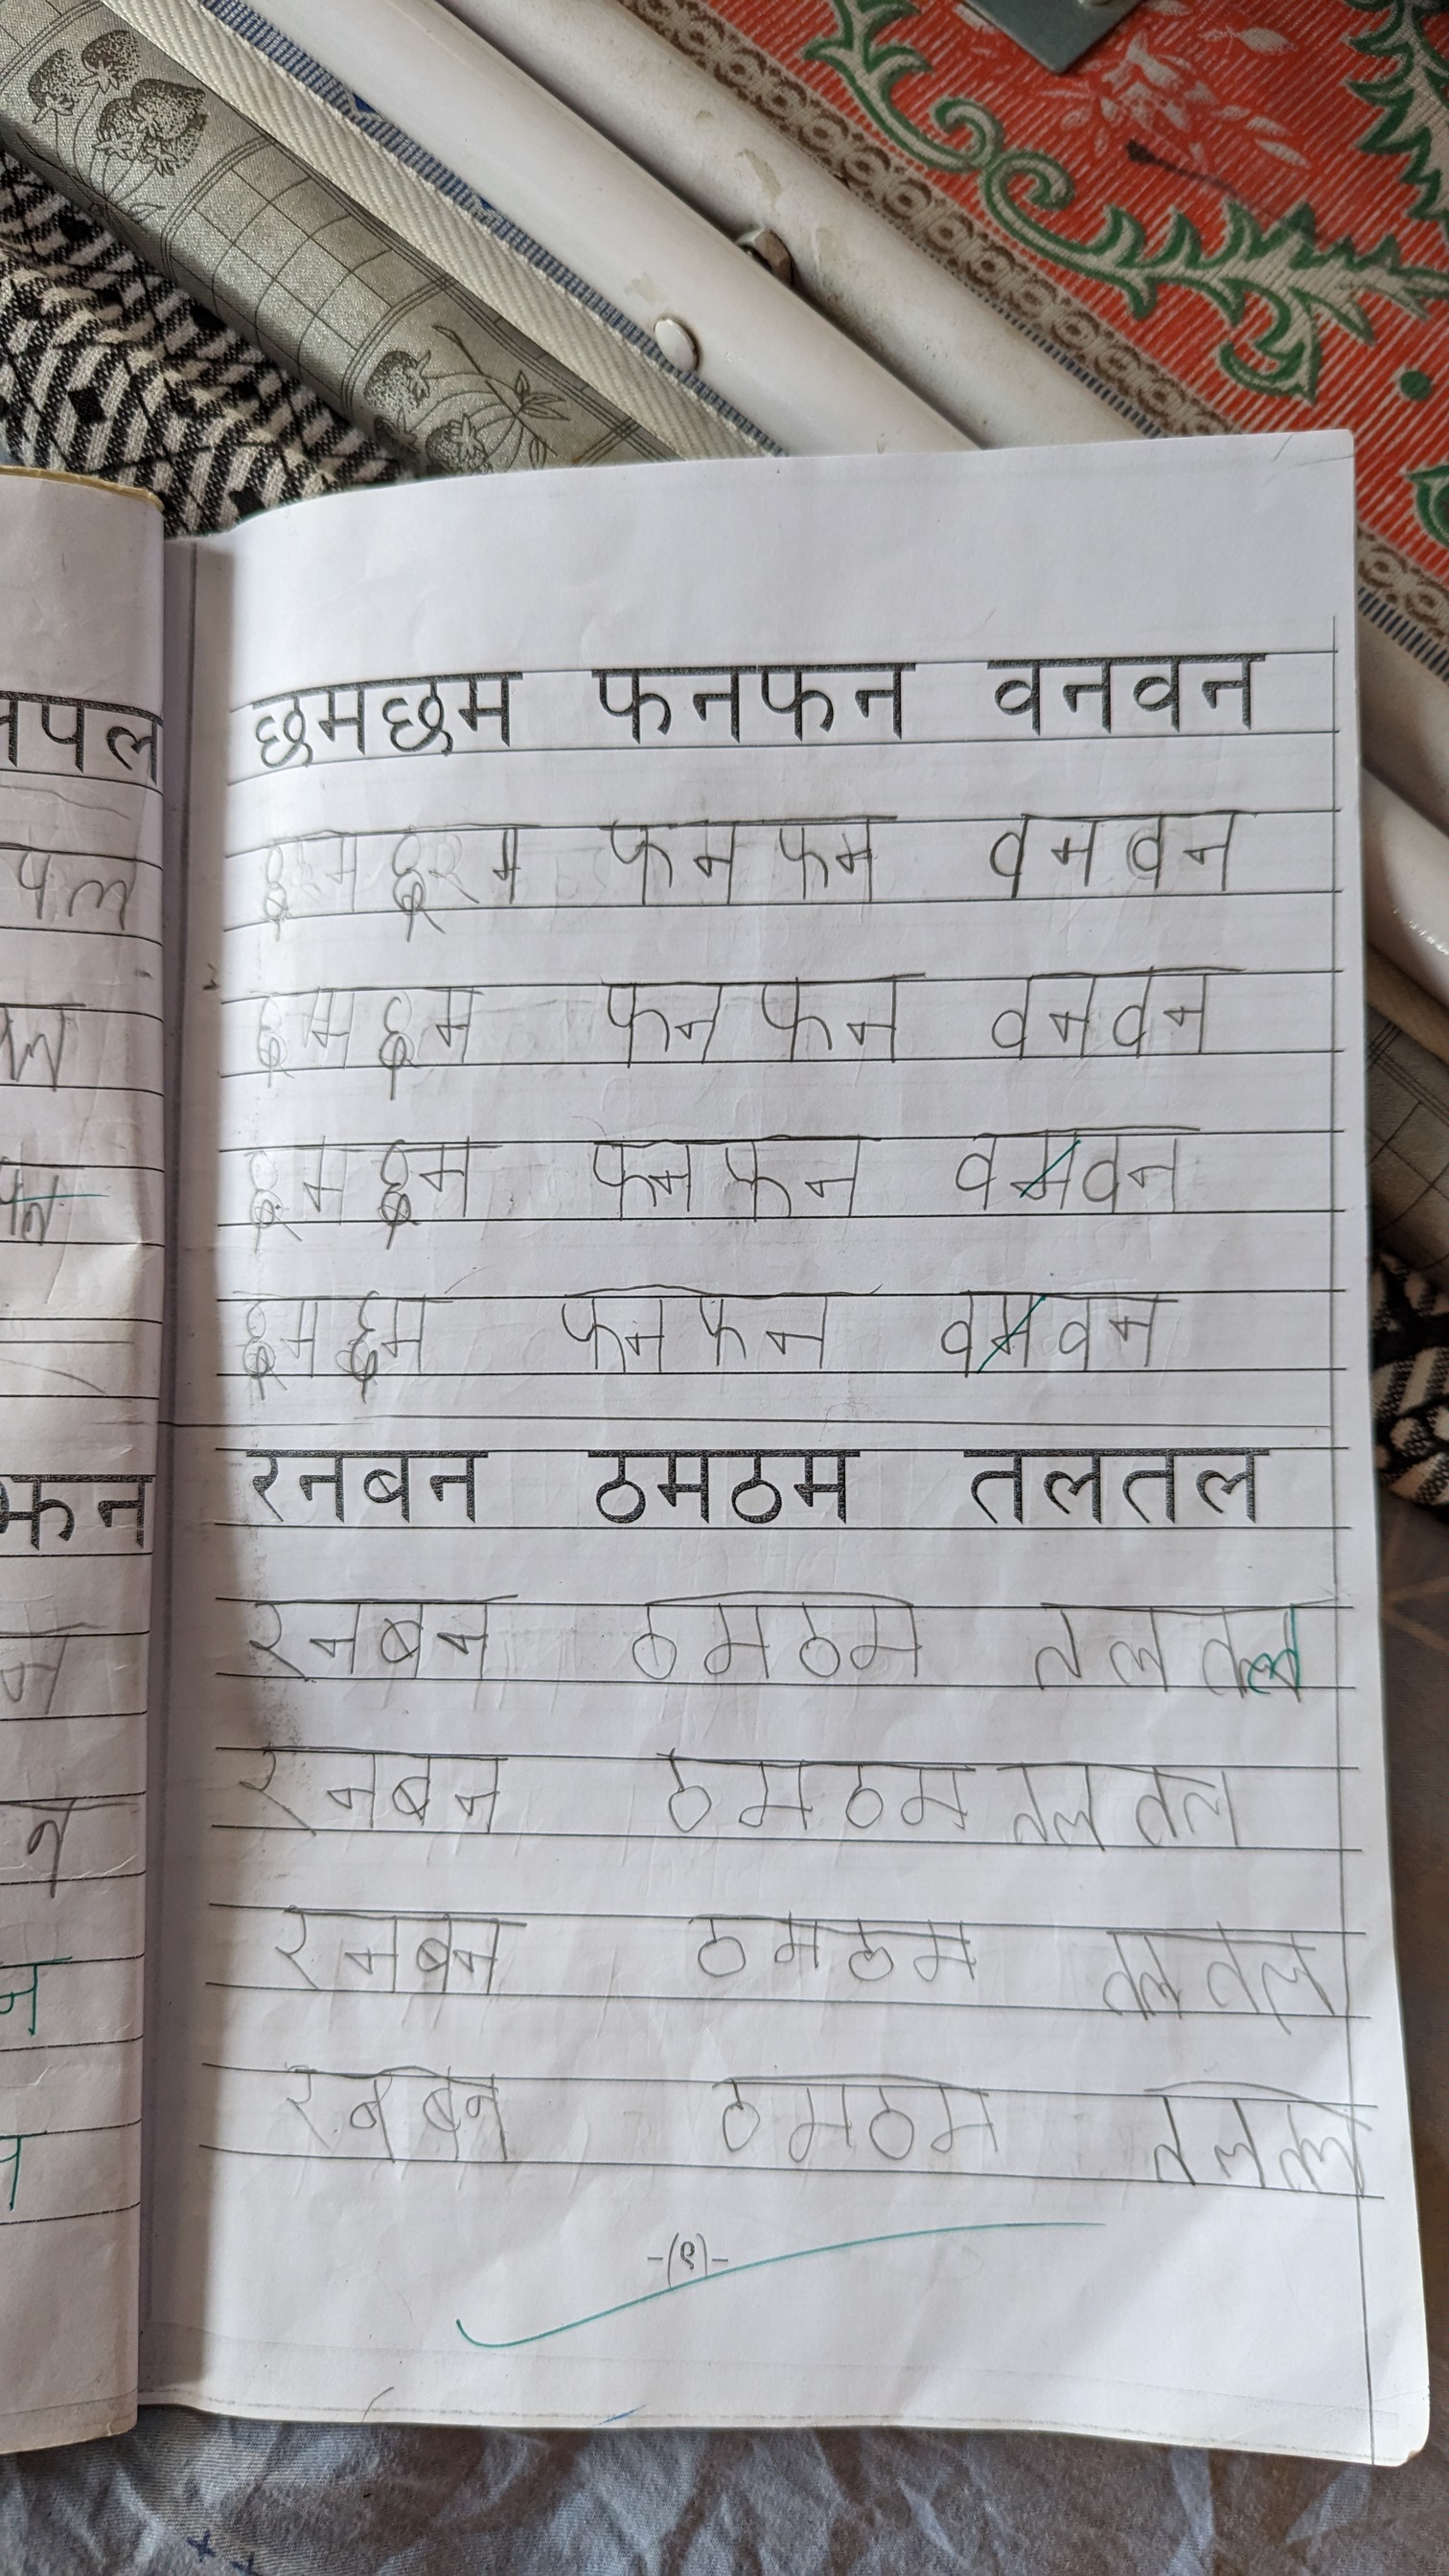 छमछम फनफन वनवन
छम छम फन फन वन वन
छम छम फन फन वन वन
छम छम फन फन वम वन
छम छम फन फन वम वन
रनबन ठमठम तलतल
रनबन ठमठम तल तल
रनबन ठमठम तल तल
रनबन ठमठम तल तल
रनबन ठमठम तल तल
-(९)-
पल
पल
झन